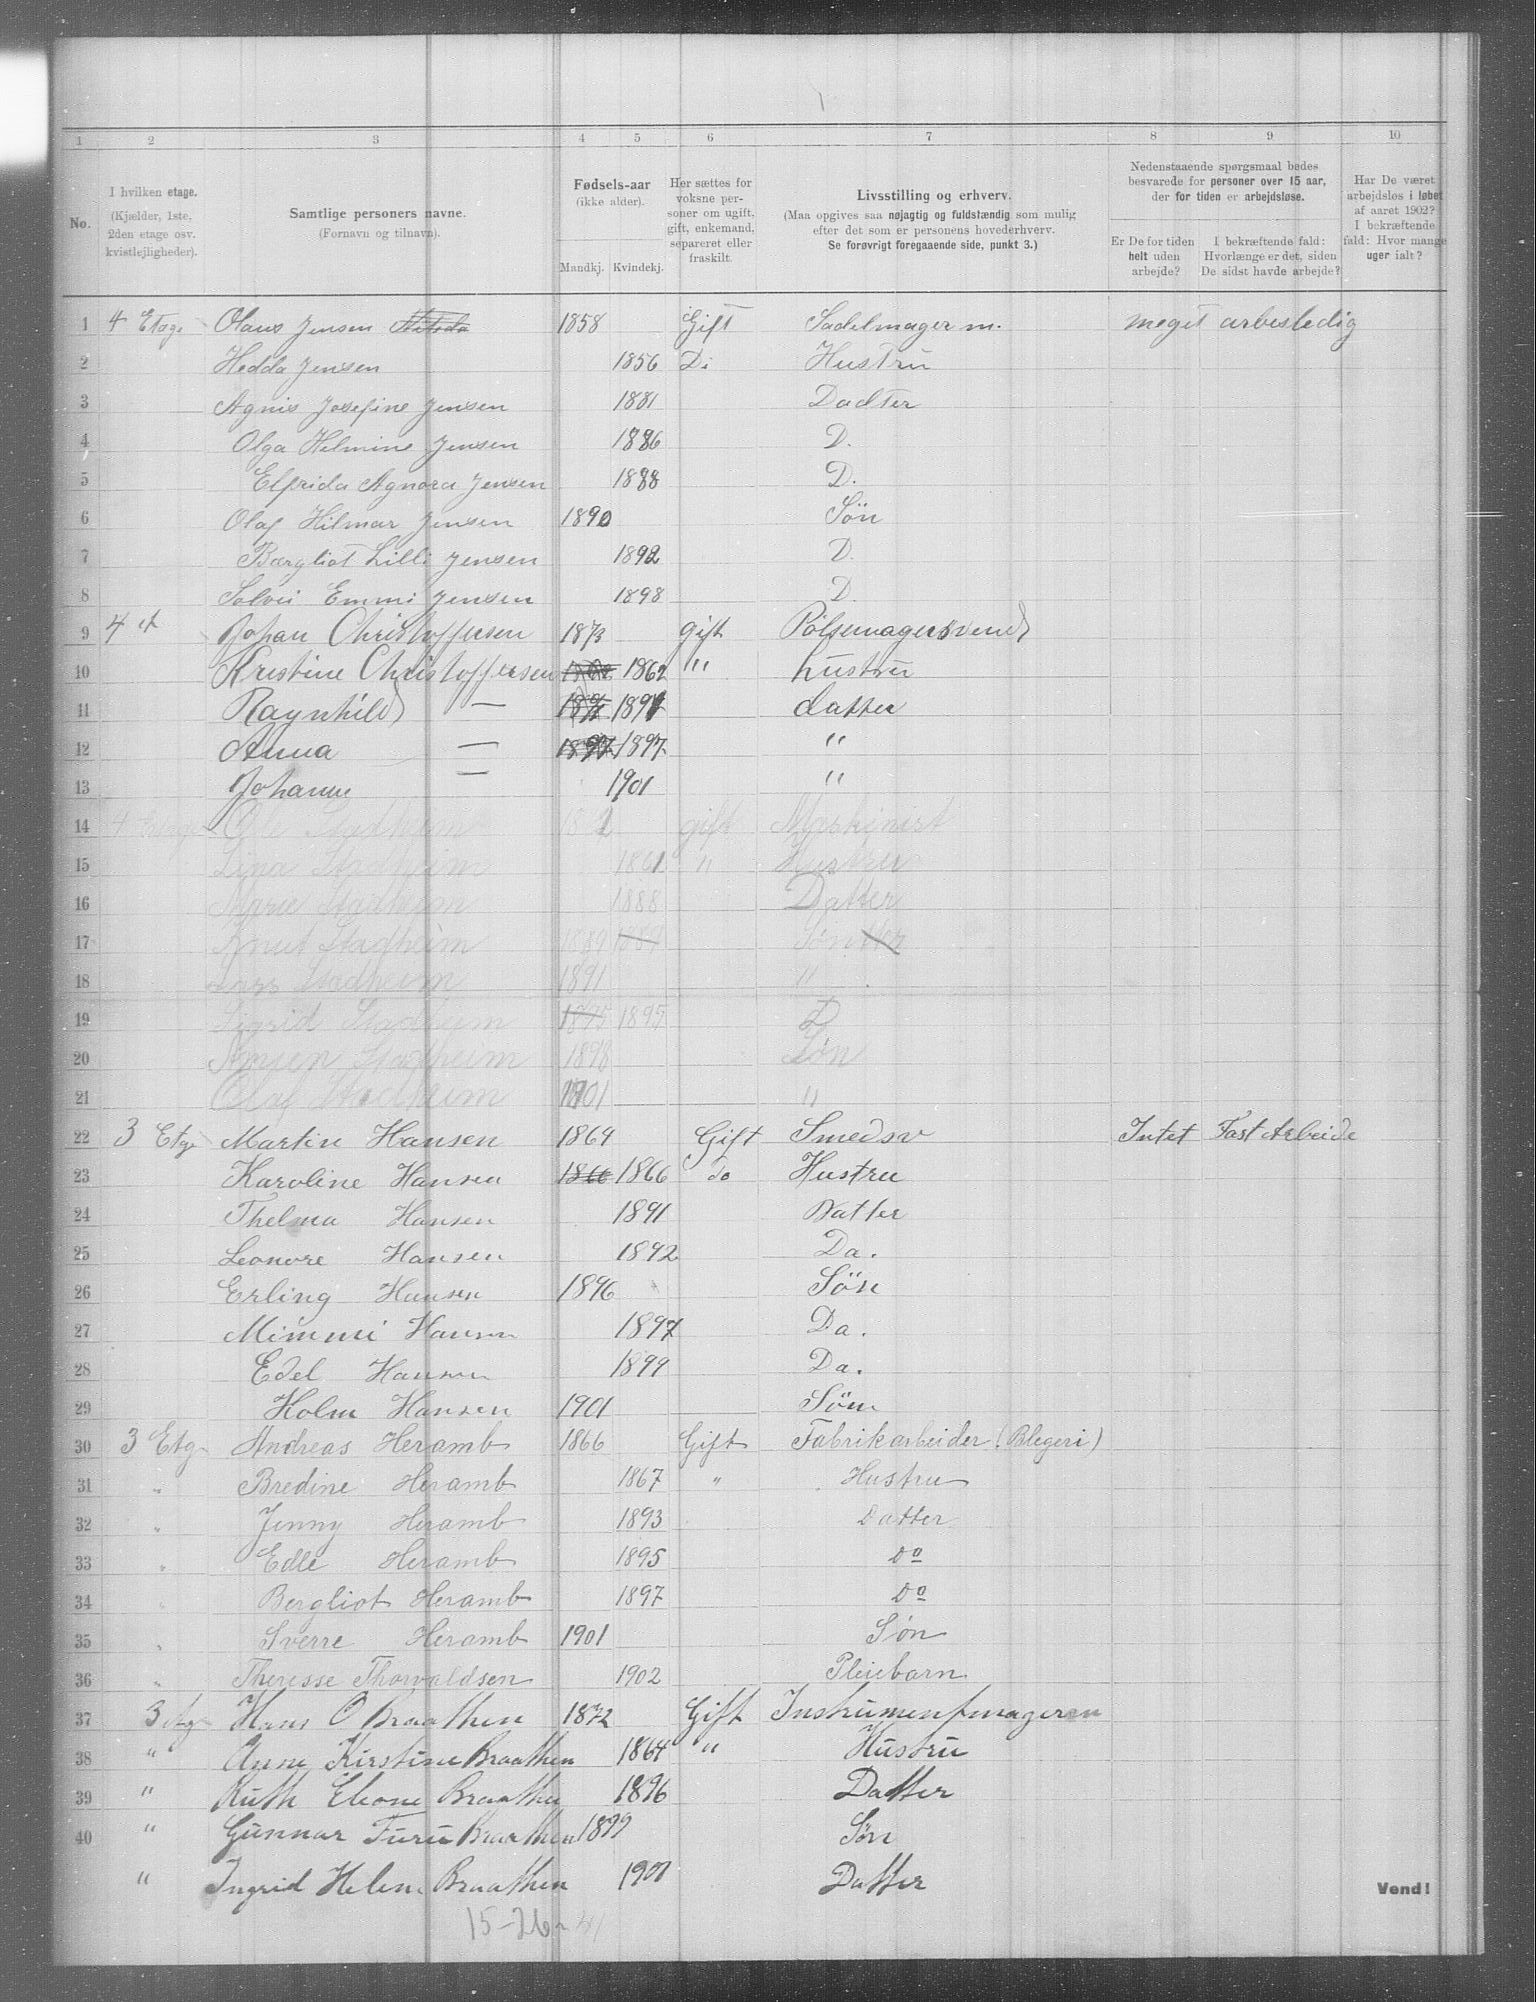 1 2 3 4 5 6 7 8 9 10
No.
I hvilken etage.
(Kjælder, 1ste,
2den etage osv.
kvistlejligheder).
Samtlige personers navne.
(Fornavn og tilnavn).
Fødsels-aar
(ikke alder).
Mandkj. Kvindekj.
Her sættes for
voksne per-
soner om ugift,
gift, enkemand,
separeret eller
fraskilt.
Livsstilling og erhverv.
(Maa opgives saa nøjagtig og fuldstændig som mulig
efter det som er personens hovederhverv.
Se forøvrigt foregaaende side, punkt 3.)
Nedenstaaende spørgsmaal bedes
besvarede for personer over 15 aar,
der for tiden er arbejdsløse.
Er De for tiden
helt uden
arbejde?
I bekræftende fald:
Hvorlænge er det, siden
De sidst havde arbejde?
Har De været
arbejdsløs i løbet
af aaret 1902?
I bekræftende
fald: Hvor mange
uger ialt?
1 4 Etage Olaus Jensen 1858 Gift Sadelmager m. meget arbesledig
2 Hedda Jensen 1856 Do Hustru
3 Agnis Josefine Jensen 1881 Dadter
4 Olga Helmine Jensen 1886 D.
5 Elfrida Agnora Jensen 1888 D.
6 Olaf Hilmar Jensen 1890 Søn
7 Bergliot Lilli Jensen 1892 D.
8 Solvei Emmi Jensen 1898 D.
9 4 et Johan Christoffersen 1873 gift Pølsemagersvend
10 Kristine Christoffersen 1862 " hustru
11 Raynhild — 1891 datter
12 Anna — 1897 1897 "
13 Johanne — 1901 "
14 4 Etage Ole Stadheim gift Maskinist
15 Lina Stadheim 1861 " Hustru
16 Marie Stadheim 1888 Datter
17 Knut Stadheim 1889 1889 Søn
18 Lars Stadheim 1891 "
19 Sigrid Stadheim 1895 1895 D
20 Stadheim 1898 Søn
21 Olaf Stadheim 1901 "
22 3 Etge Martin Hansen 1864 Gift Smedsv Intet Fast Arbeide
23 Karoline Hansen 1866 1866 do Hustru
24 Thelma Hansen 1891 Datter
25 Leonore Hansen 1892 Da.
26 Erling Hansen 1896 Søn
27 Mimmi Hansen 1897 Da.
28 Edel Hansen 1899 Da.
29 Holm Hansen 1901 Søn
30 3 Etg Andreas Heramb 1866 Gift Fabrikarbeider (Blegeri)
31 " Bredine Heramb 1867 " Hustru
32 " Jenny Heramb 1893 Datter
33 " Edle Heramb 1895 Do
34 " Bergliot Heramb 1897 Do
35 " Sverre Heramb 1901 Søn
36 " Theresse Thorvaldsen 1902 Pleiebarn
37 3 etg Hans O Braathen 1872 Gift Instrumentmager
38 " Anne Kirstine Braathen 1864 " Hustru
39 " Ruth Eleone Braathen 1896 Datter
40 " Gunnar Furu Braathen 1899 Søn
" Ingrid Helene Braathen 1901 Datter
Vend!
15-26=41